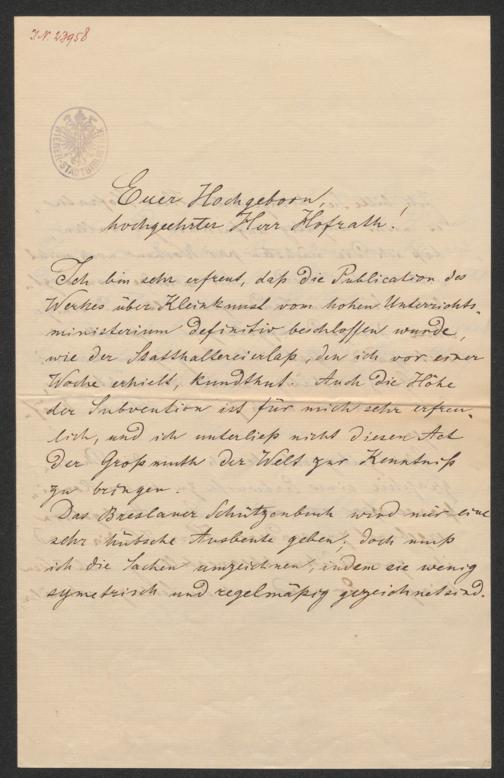 J.N. 23958
Euer Hochgeborn,
hochgeehrter Herr Hofrath!
Ich bin sehr erfreut, daß die Publication des
Werkes über Kleinkunst vom hohen Unterrichts-
ministerium definitiv beschlossen wurde,
wie der Statthaltereierlaß, den ich vor einer
Woche erhielt, kundthut. Auch die Höhe
der Subvention ist für mich sehr erfreu-
lich, und ich unterließ nicht diesen Act
der Großmuth der Welt zur Kenntniß
zu bringen.
Das Breslauer Schützenbuch wird mir eine
sehr hübsche Ausbeute geben, doch muß
ich die Sachen umzeichnen, indem sie wenig
symetrisch und regelmäßig gezeichnet sind.